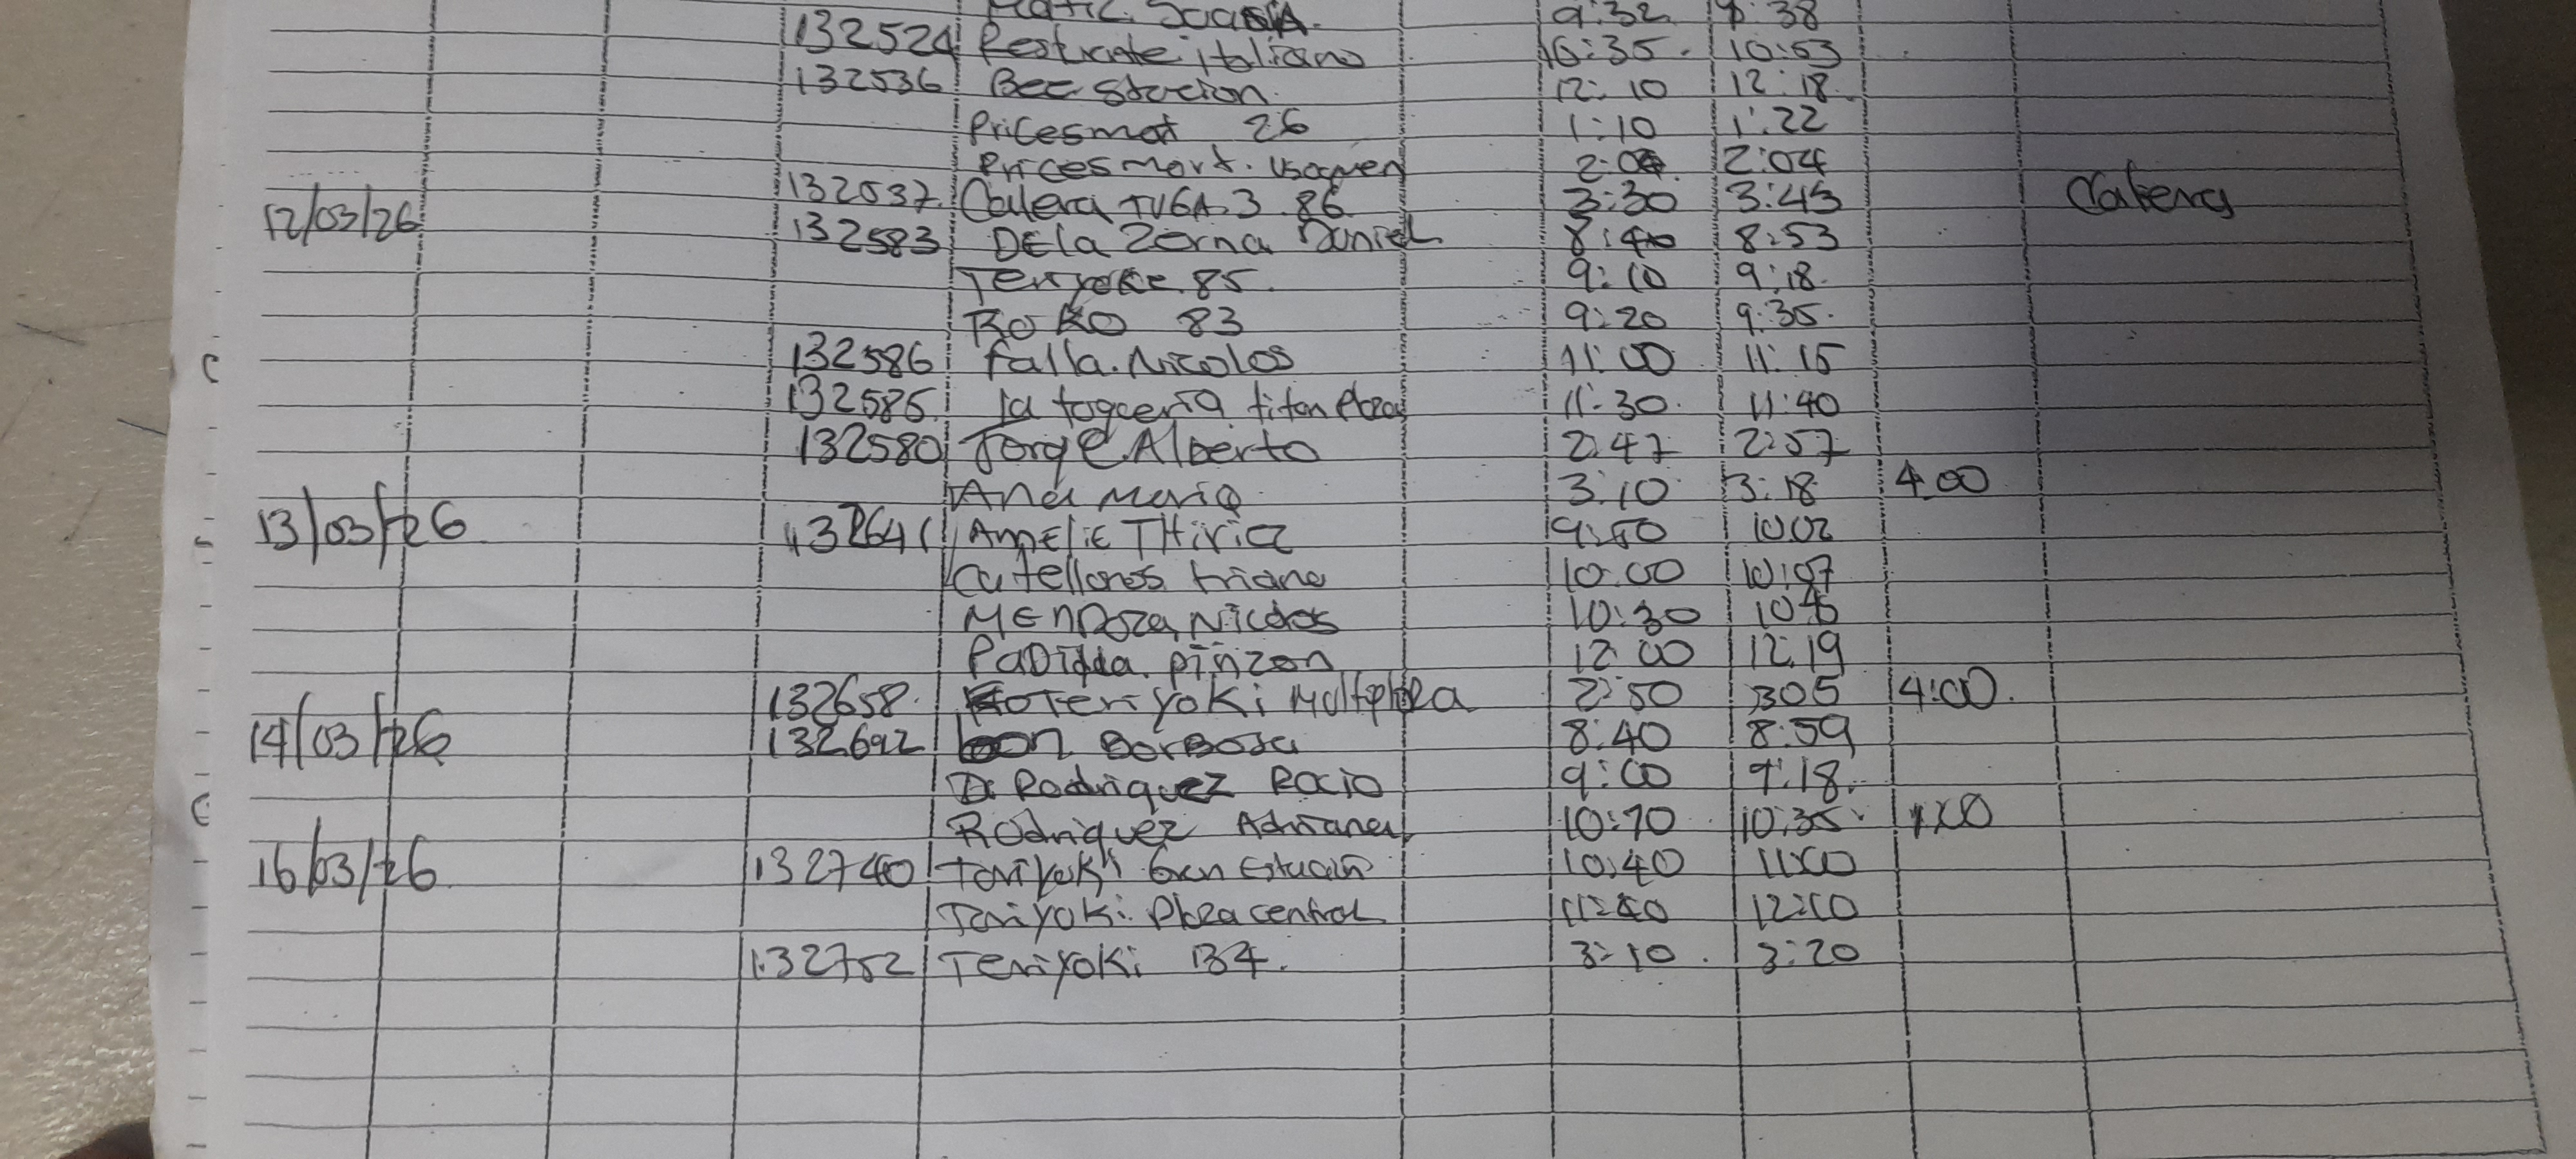 9:32 38
132524 Restrante italiano 10:35. 10:53
132536 Bee Stacion. 12:10 12:18.
Pricesmat 26 1:10 1:22
Pricesmart. Usaquen 2:04
132537. Calera TV6A.3.86. 3:30 3:45 Calera
12/03/26 132583 DEla Zerna Daniel 8:40 8:53
Teriyoke.85. 9:10 9:18.
KOKO 83 9:20 9:35.
132586 falla.Nicolos 11:00 11:15
132585. la toqueria titan plaza 11:30. 11:40
132580 Jorge.Alberto 2:47 2:57
Ana Maria. 3:10 3:18 4.00
13/03/26 132641 AmElie THiria 9:50 1002
Catellanos triana 10:00 10:07
MENDoza Nicolos 10:30
pinzon 12:00 12:19
132658. Teriyoki Multiplaza 2:50 305 4:00.
14/03/26 132692 Borbosa 8:40 8:59
D. Rodriguez Rocio 9:00 9:18.
Rodriguez Adriana 10:10 10:35.
16/03/26 132740 Teriyoki Gran Estación 10:40 11:00
Teriyoki. Plaza central 11:40 12:00
132752 Teriyoki 134. 3:10. 3:20